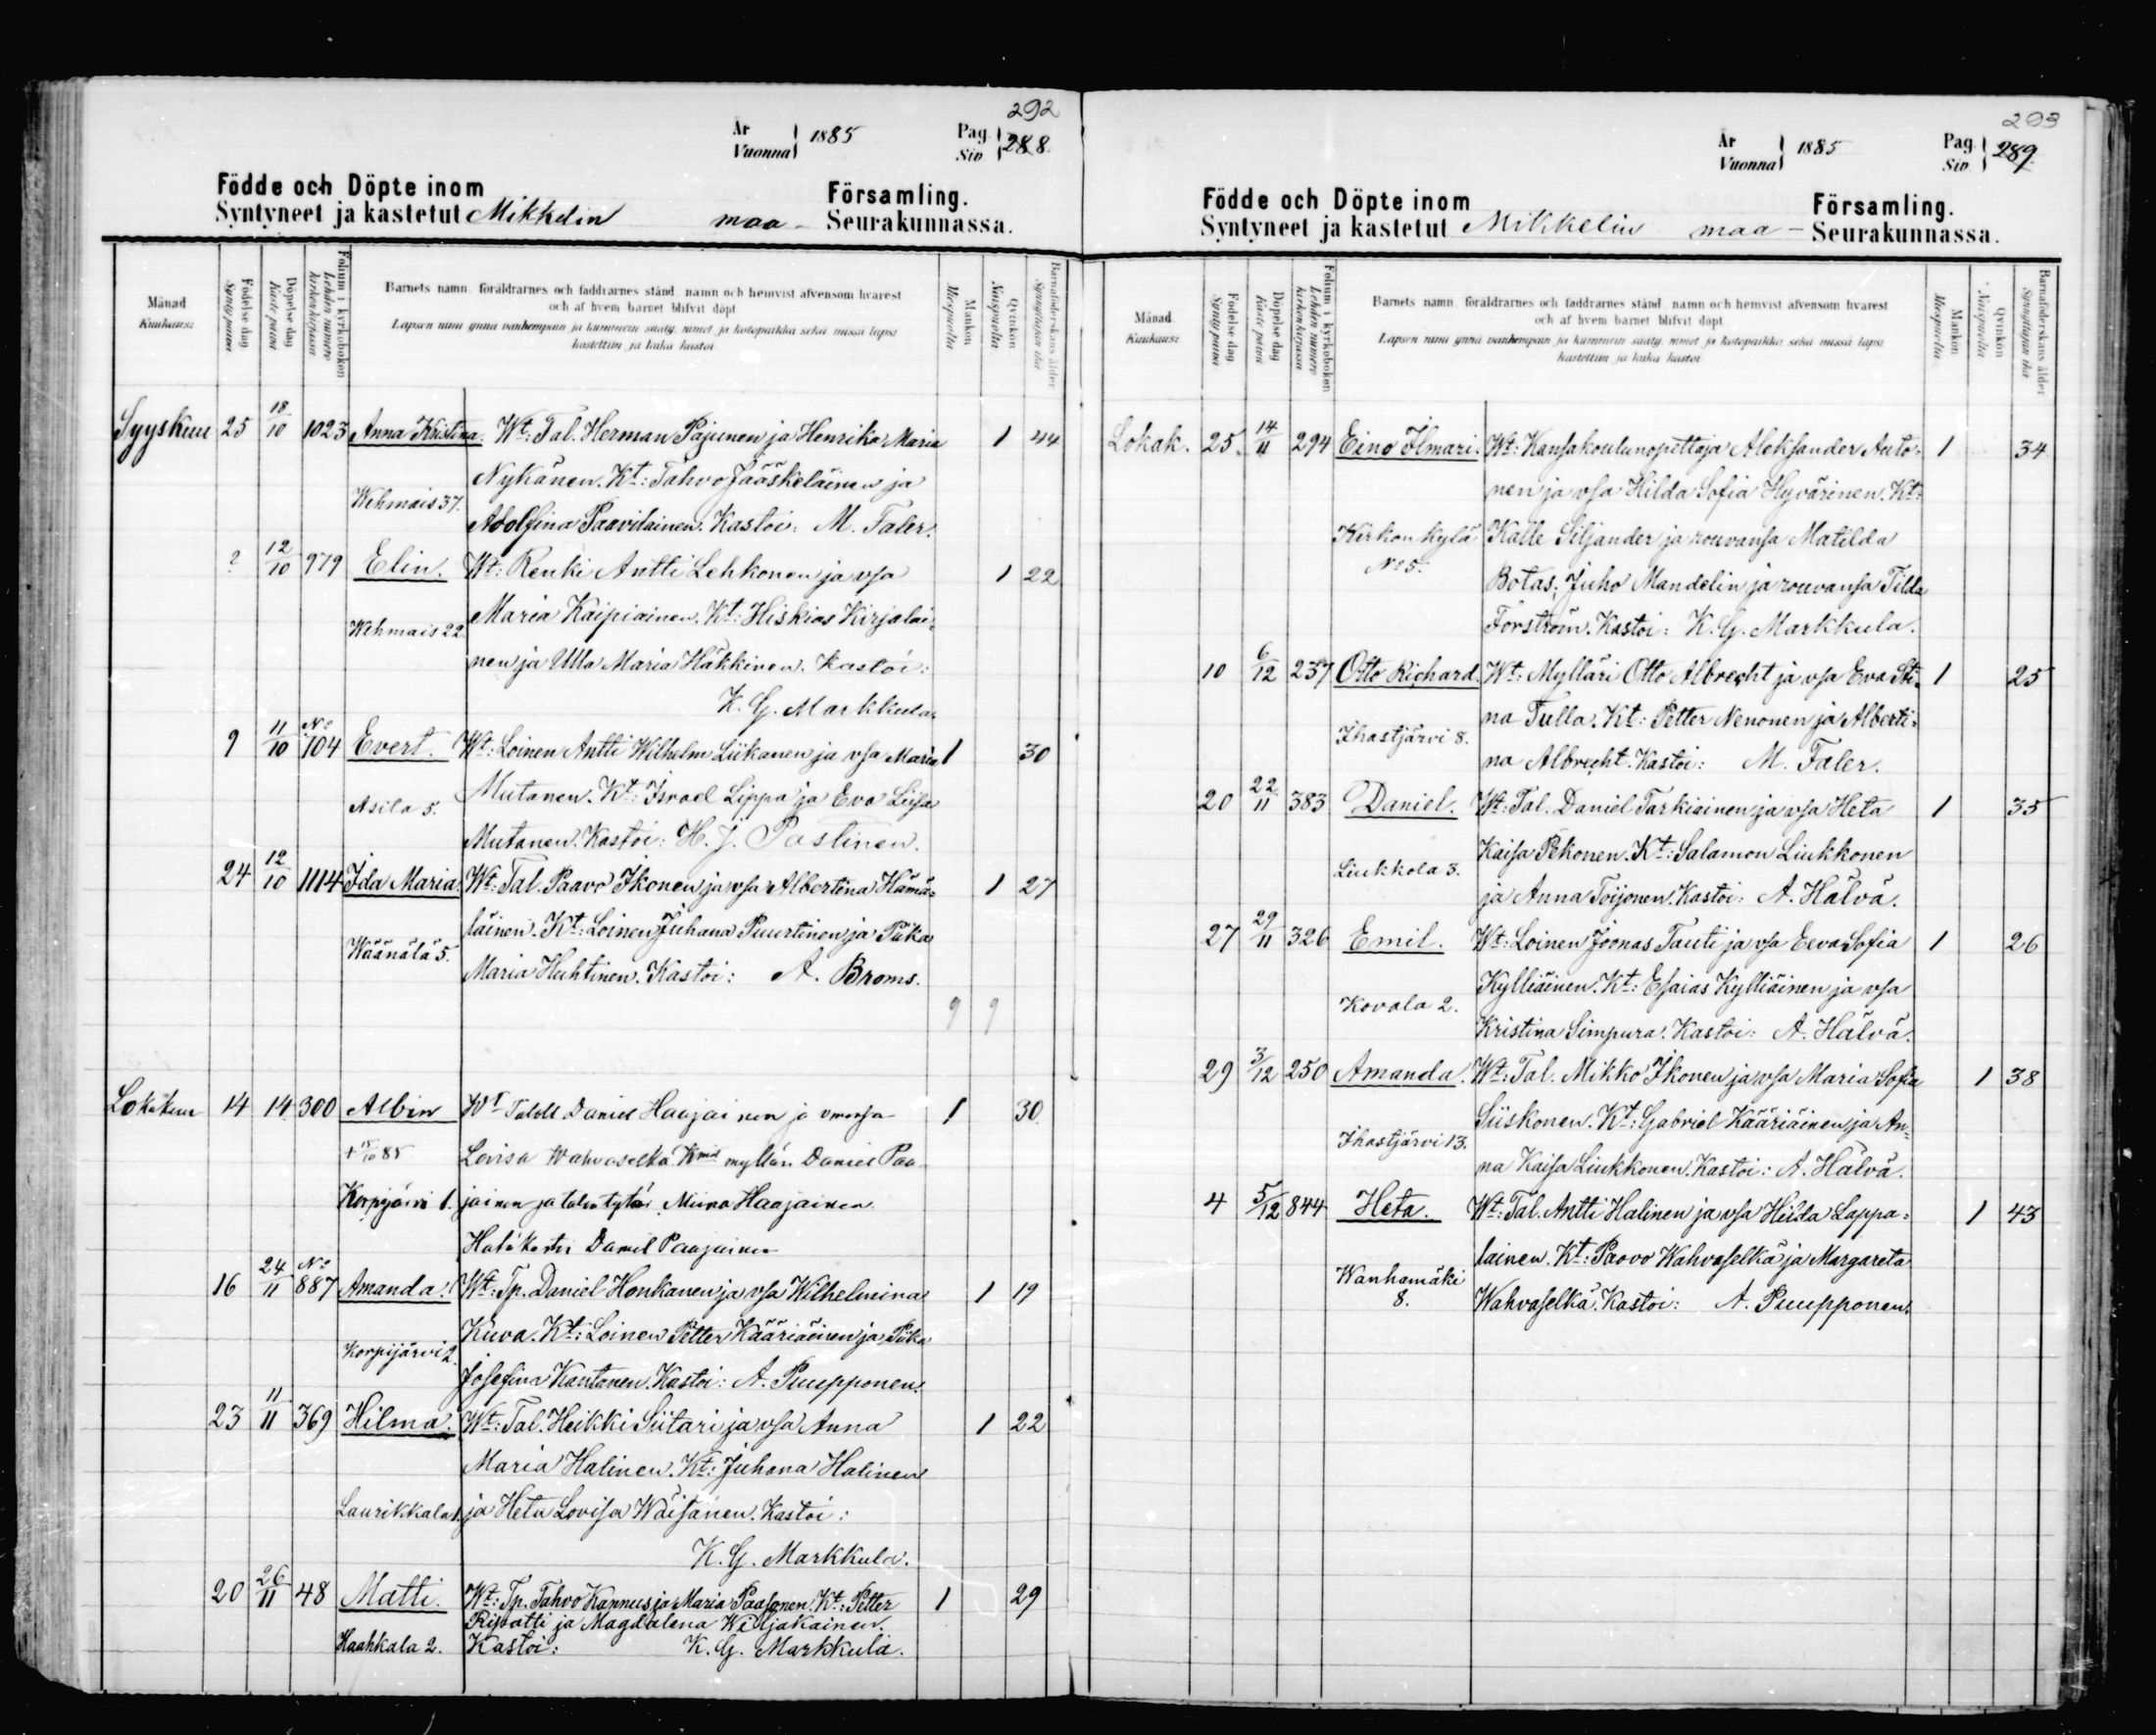 292
År
Vuonna } 1885
Pag.
Siv. } 288.
Födde och Döpte inom Församling.
Syntyneet ja kastetut Mikkelin maa- Seurakunnassa.
Månad
Kuukausi
Födelse dag
Synty päivä
Döpelse dag
Kaste päivä
Folium i kyrkoboken
Lehden numero kirkonkirjassa
Barnets namn, föräldrarnes och faddrarnes stånd, namn och hemvist äfvensom hvarest
och af hvem barnet blifvit döpt
Lapsen nimi ynnä vanhempain ja kummein sääty, nimet ja kotopaikka sekä missä lapsi
kastettiin ja kuka kastoi
Mankön
Miespuolia
Qvinkön
Naispuolia
Barnaföderskans ålder
Synnyttäjän ikä
Syyskuu 25 18/10 1023 Anna Kristina. Wt: Tal. Herman Pajunen ja Henrika Maria 1 44
Nykänen. Kt: Tahvo Jääskeläinen ja
Wehmais 37.
Adolfina Paavilainen. Kastoi: M. Taler.
? 12/10 979 Elin. Wt: Renki Antti Lehkonen ja vsa 1 22
Maria Kaipiainen. Kt: Hiskias Kirjalai-
Wehmais 22
nen ja Ulla Maria Häkkinen. Kastoi:
K. G. Markkula.
9 11/10 No 704 Evert. Wt: Loinen Antti Wilhelm Liikanen ja vsa Maria 1 30
Mutanen. Kt: Israel Lippa ja Eva Liisa
Asila 5.
Mutanen. Kastoi: H. J. Pastinen.
24 12/10 1114 Ida Maria. Wt: Tal. Paavo Ikonen ja vsa Albertina Hämä- 1 27
läinen. Kt: Loinen Juhana Puurtinen ja Piika
Wäänälä 5.
Maria Huhtinen. Kastoi: A. Broms.
9 9
Lokakuu 14 14 300 Albin Wt Talol Daniel Haajainen ja vmonsa 1 30.
+ 15/10 85 Lovisa Wahvaselkä Kmit mylläri Daniel Paa-
Korpijärvi 1. jainen ja talon tytär Miina Haajainen
Hätäkasti Daniel Paajainen
16 24/11 No 887 Amanda. Wt: Tp. Daniel Honkanen ja vsa Wilhelmina 1 19
Kuva. Kt: Loinen Petter Kääriäinen ja Piika
Korpijärvi 2.
Josefina Kantanen. Kastoi: A. Puupponen.
23 11/11 369 Hilma. Wt: Tal. Heikki Siitari ja vsa Anna 1 22
Maria Halinen. Kt: Juhana Halinen
Laurikkala 1. ja Heta Lovisa Wäisänen. Kastoi:
K. G. Markkula.
20 26/11 48 Matti. Wt: Tp. Tahvo Kannus ja Maria Paasonen. Kt: Petter 1 29
Ripatti ja Magdalena Wiljakainen.
Haahkala 2. Kastoi: K. G. Markkula.
293
År
Vuonna } 1885
Pag.
Siv. } 289.
Födde och Döpte inom Församling.
Syntyneet ja kastetut Mikkelin maa- Seurakunnassa.
Månad
Kuukausi
Födelse dag
Synty päivä
Döpelse dag
Kaste päivä
Folium i kyrkoboken
Lehden numero kirkonkirjassa
Barnets namn, föräldrarnes och faddrarnes stånd, namn och hemvist äfvensom hvarest
och af hvem barnet blifvit döpt
Lapsen nimi ynnä vanhempain ja kummein sääty, nimet ja kotopaikka sekä missä lapsi
kastettiin ja kuka kastoi
Mankön
Miespuolia
Qvinkön
Naispuolia
Barnaföderskans ålder
Synnyttäjän ikä
Lokak. 25. 14/11 294 Eino Ilmari. Wt: Kansakoulunopettaja Aleksander Auto- 1 34
nen ja vsa Hilda Sofia Hyvärinen. Kt:
Kirkonkylä Kalle Siljander ja rouvansa Matilda
No 5.
Botas; Juho Mandelin ja rouvansa Tilda
Forström. Kastoi: K. G. Markkula.
10 6/12 237 Otto Richard. Wt: Mylläri Otto Albrecht ja vsa Eva Sti- 1 25
na Tulla. Kt: Petter Nenonen ja Alberti-
Ihastjärvi 8.
na Albrecht. Kastoi: M. Taler.
20 22/11 383 Daniel. Wt: Tal. Daniel Tarkiainen ja vsa Heta 1 35
Kaisa Pekonen. Kt: Salamon Liukkonen
Liukkola 3.
ja Anna Toijonen. Kastoi: A. Hälvä.
27 29/11 326 Emil. Wt: Loinen Joonas Tauti ja vsa Eeva Sofia 1 26
Kylliäinen. Kt: Esaias Kylliäinen ja vsa
Kovala 2.
Kristina Simpura. Kastoi: A. Hälvä.
29 3/12 250 Amanda. Wt: Tal. Mikko Ikonen ja vsa Maria Sofia 1 38
Siiskonen. Kt: Gabriel Kääriäinen ja An-
Ihastjärvi 13.
na Kaisa Liukkonen. Kastoi: A. Hälvä.
4 5/12 844 Heta. Wt: Tal. Antti Halinen ja vsa Hilda Lappa- 1 43
lainen. Kt: Paavo Wahvaselkä ja Margareta
Wanhamäki
8. Wahvaselkä. Kastoi: A. Puupponen.